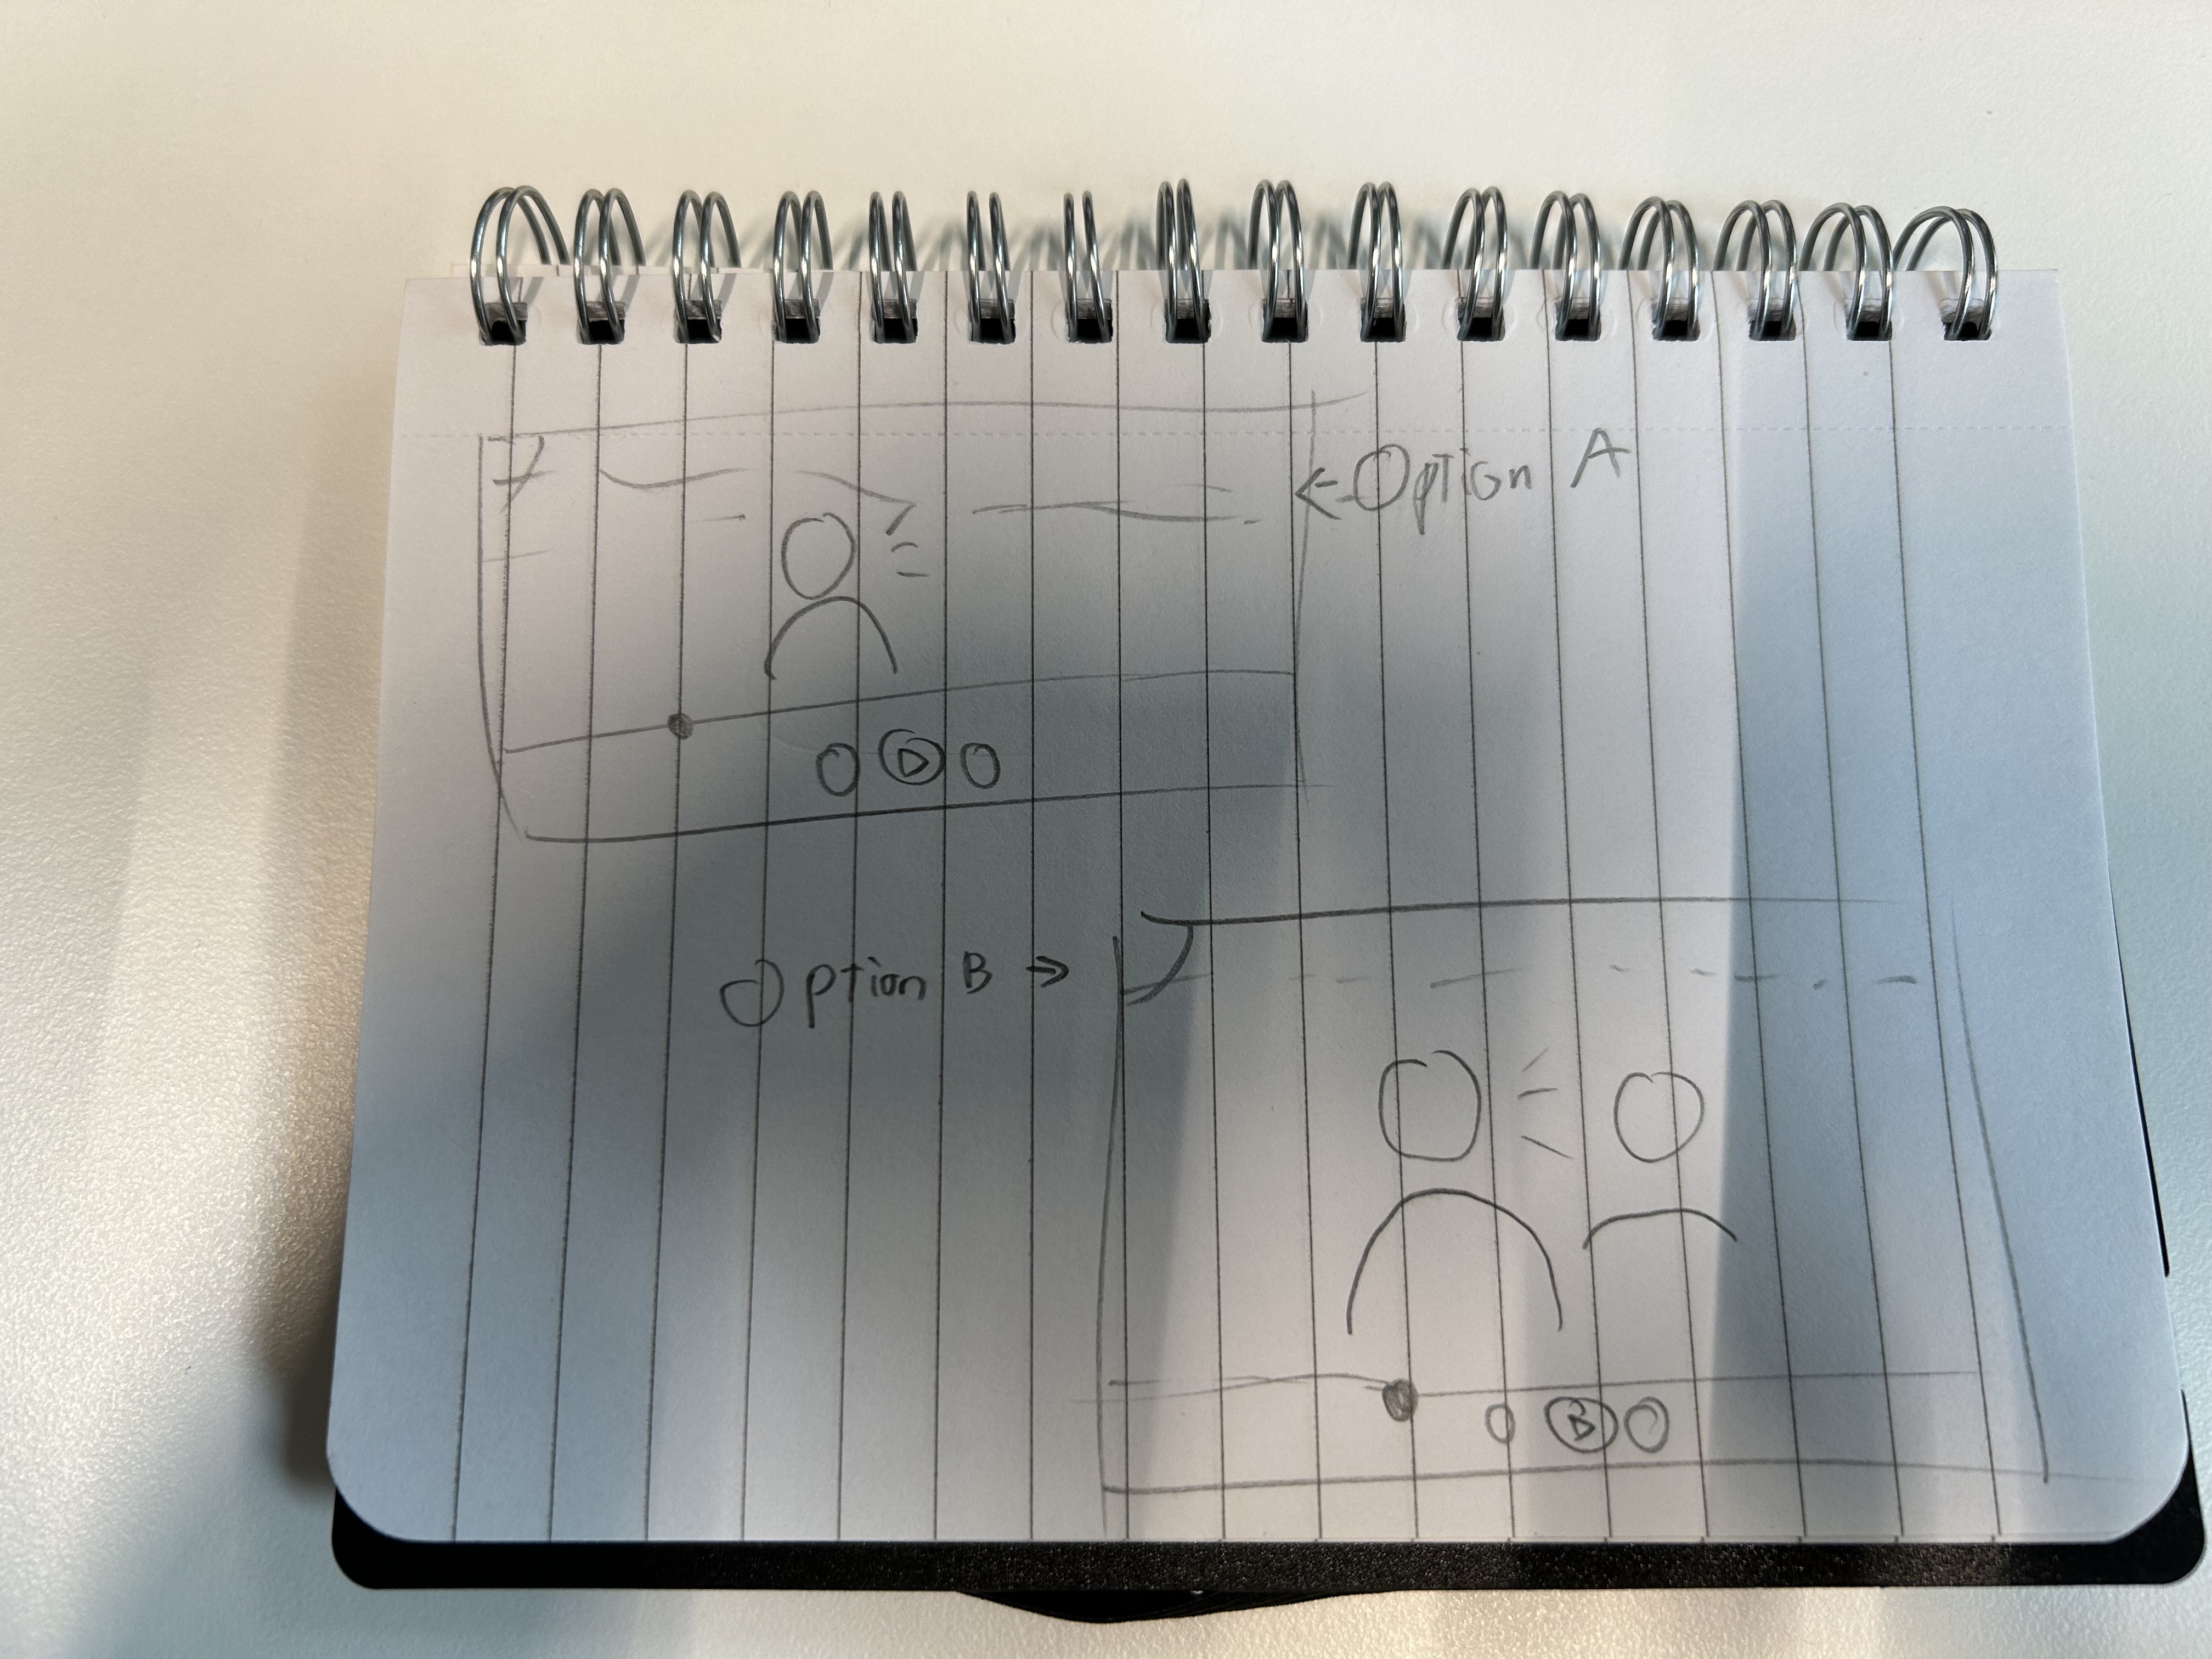 ← Option A
Option B →